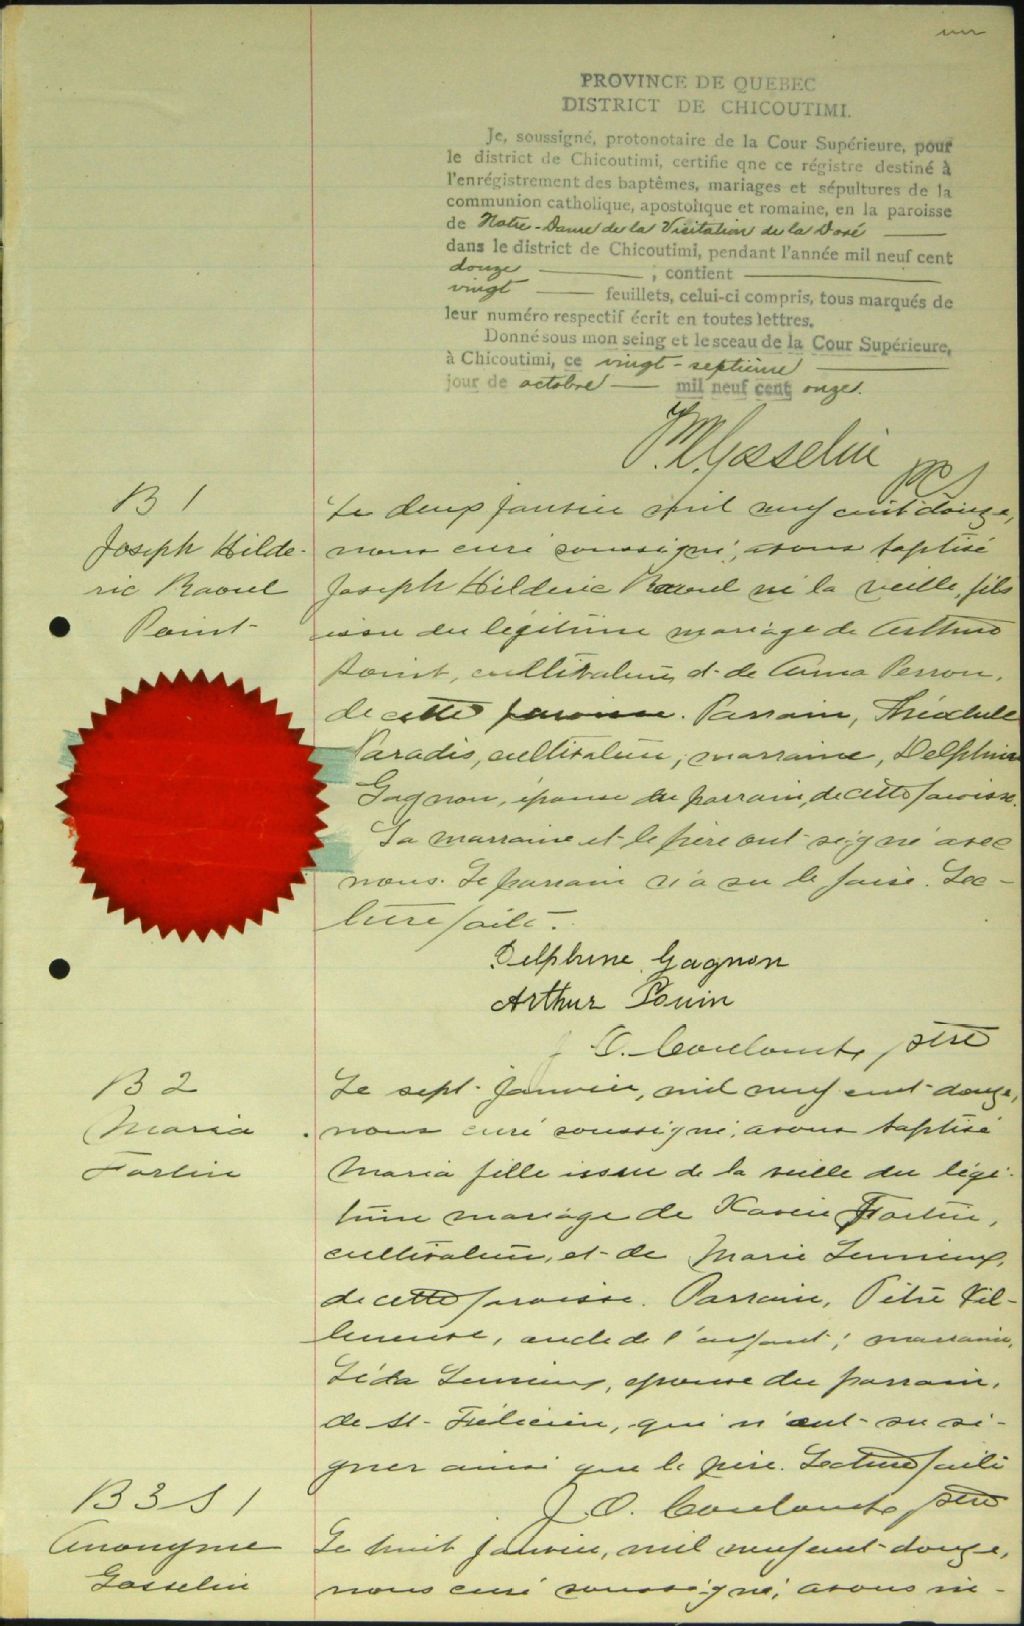 un
PROVINCE DE QUEBEC
DISTRICT DE CHICOUTIMI.
Je, soussigné, protonotaire de la Cour Supérieure, pour
le district de Chicoutimi, certifie qne ce régistre destiné à
l'enrégistrement des baptêmes, mariages et sépultures de la
communion catholique, apostolique et romaine, en la paroisse
de Notre-Dame de la Visitation de la Doré
dans le district de Chicoutimi, pendant l'année mil neuf cent
douze ; contient
vingt feuillets, celui-ci compris, tous marqués de
leur numéro respectif écrit en toutes lettres.
Donné sous mon seing et le sceau de la Cour Supérieure,
à Chicoutimi, ce vingt-septième
jour de octobre mil neuf cent onze.
Gosselin
PCS
B 1
Joseph Hilde-
ric Raoul
Point
Le deux janvier mil neuf cent douze,
nous curé soussigné, avons baptisé
Joseph Hilderic Raoul né la veille, fils
issu du légitime mariage de Arthur
Point, cultivateur, et de Anna Perron,
de cette paroisse. Parrain, Théodule
Paradis, cultivateur, marraine, Delphine
Gagnon, épouse du parrain, de cette paroisse.
La marraine et le père ont signé avec
nous. Le parrain n'a su le faire. Lec-
ture faite.
Delphine Gagnon
Arthur Pouin
J. O. Coulombe, ptre
B 2
Maria
Fortin
Le sept janvier, mil neuf cent douze,
nous curé soussigné, avons baptisé
Maria fille issue de la veille du légi-
time mariage de Xavier Fortin,
cultivateur, et de Marie Lemieux,
de cette paroisse. Parrain, Pitre Vil-
leneuve, oncle de l'enfant ; marraine,
Léda Lemieux, épouse du parrain,
de St-Félicien, qui n'ont su si-
gner ainsi que le père. Lecture faite
J. O. Coulombe, ptre
B 3 S 1
Anonyme
Gosselin
Le huit janvier, mil neuf cent douze,
nous curé soussigné, avons in-